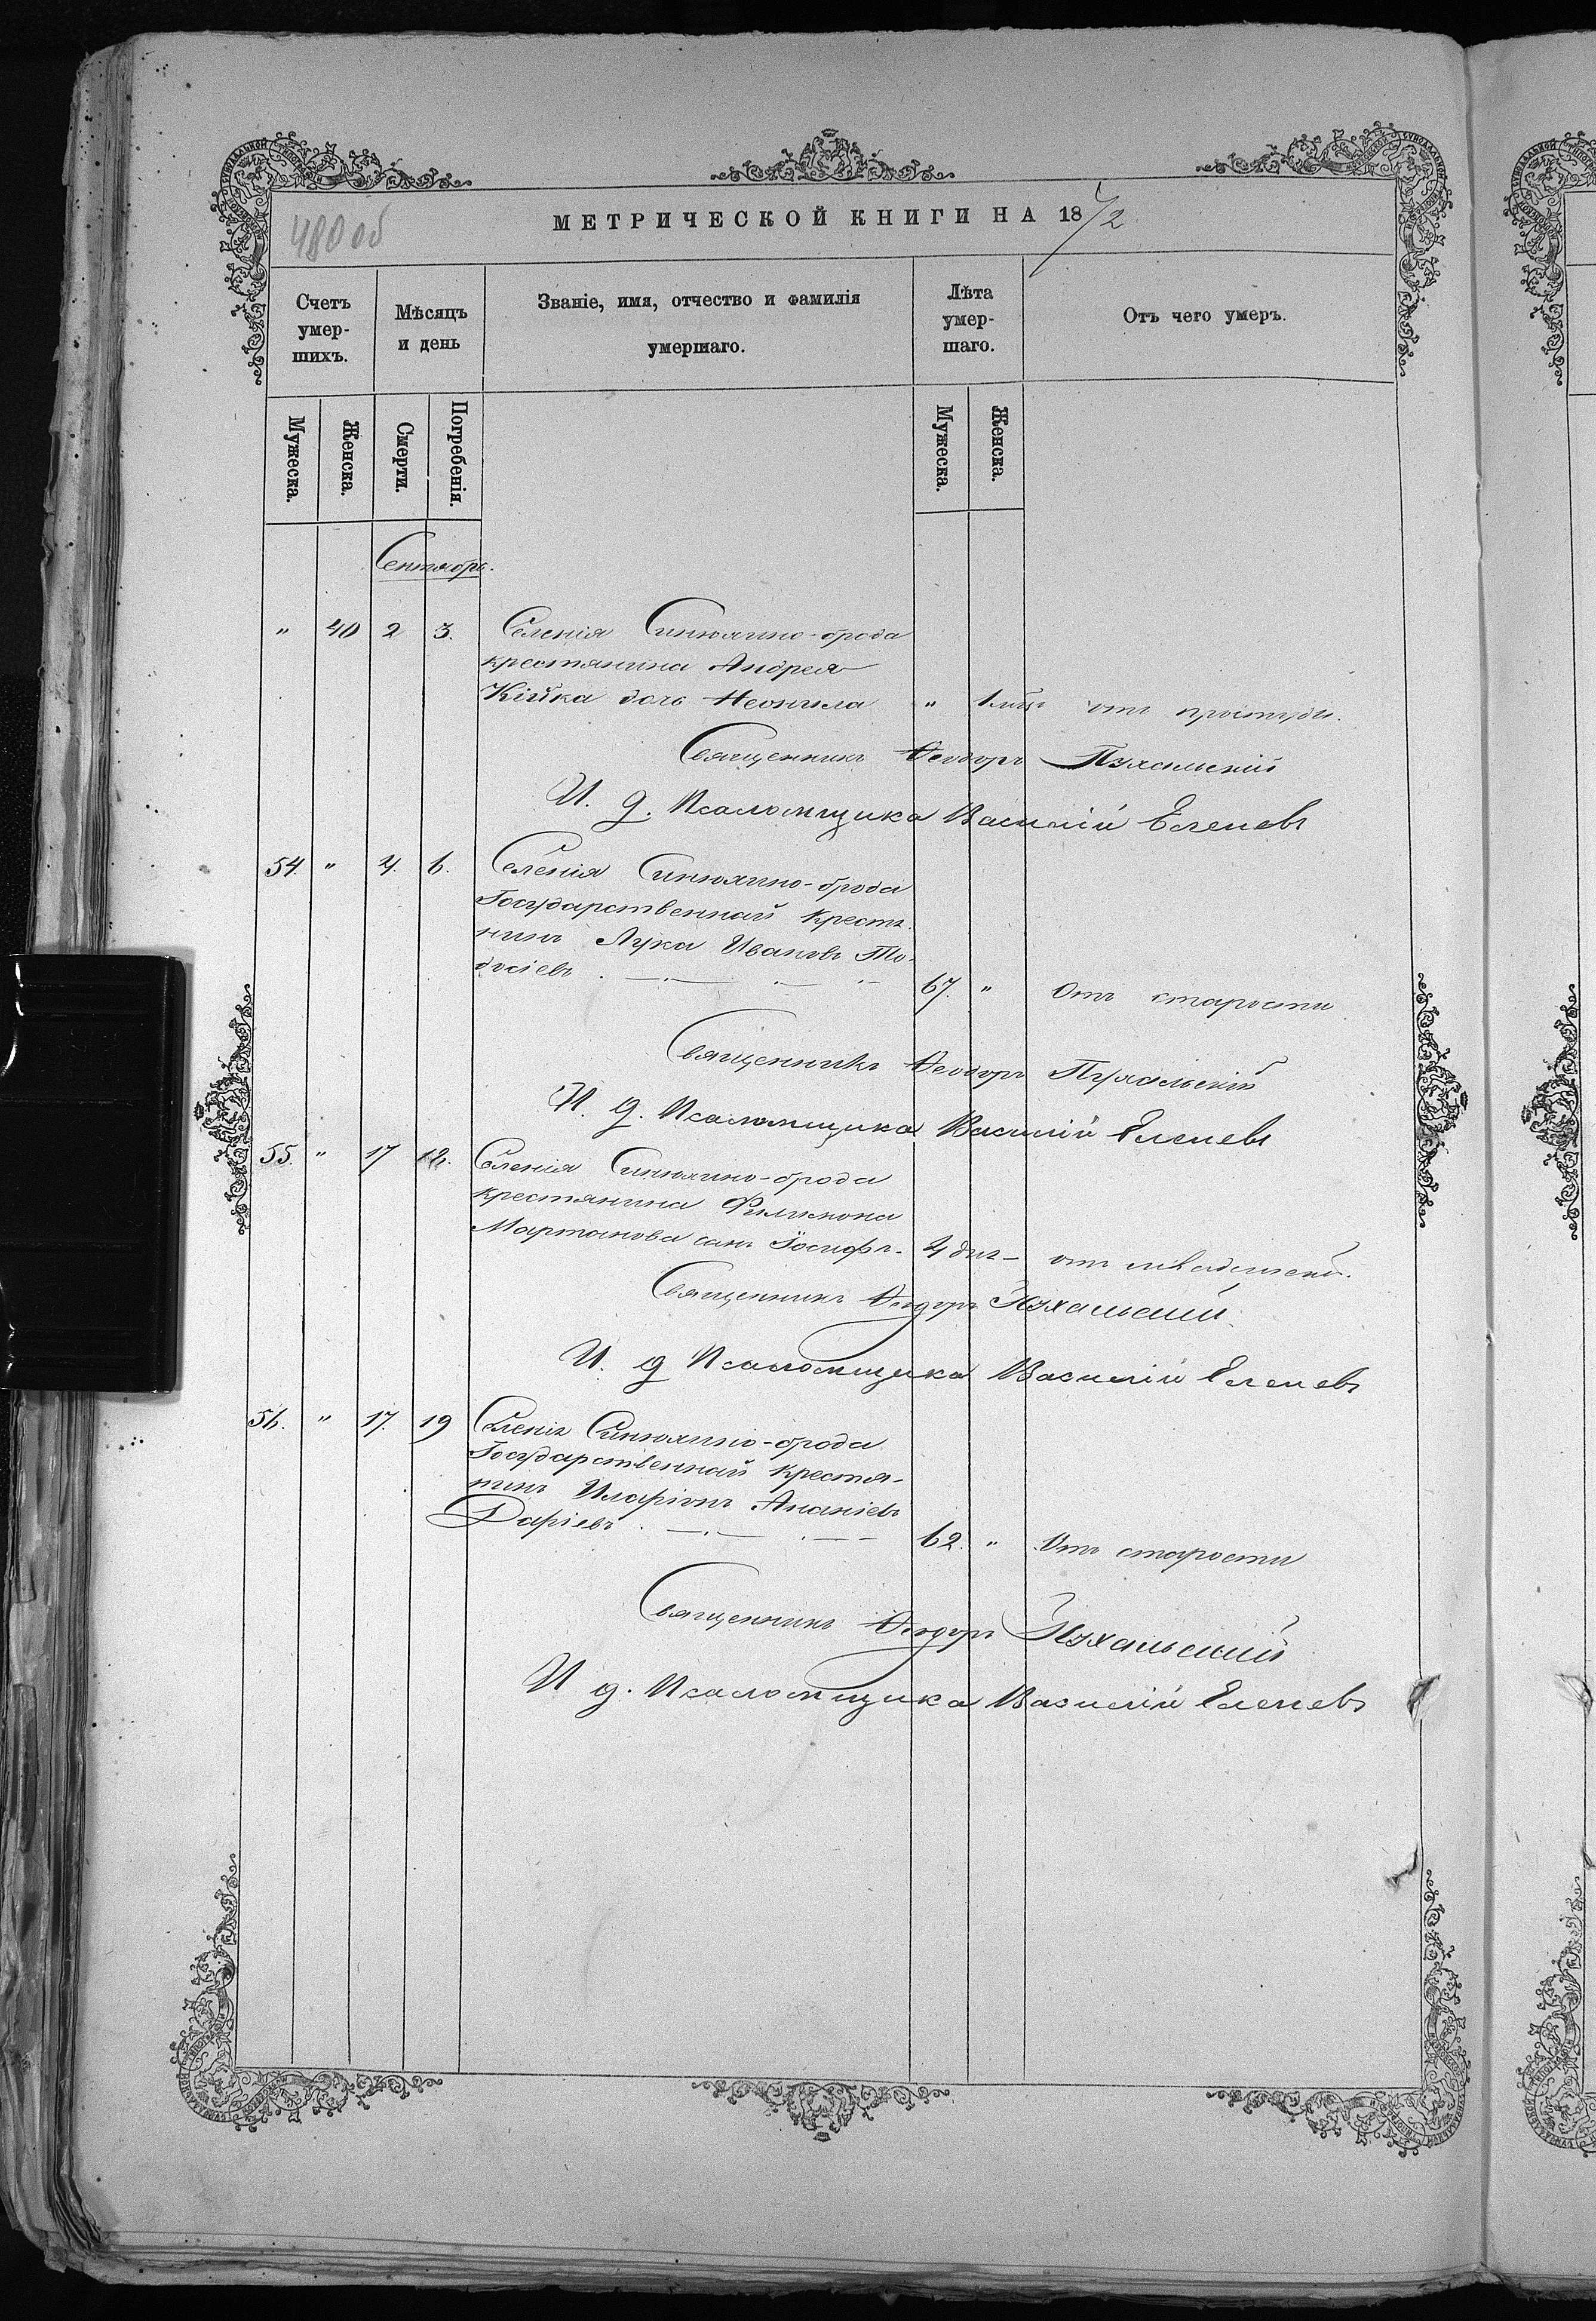 480 об
МЕТРИЧЕСКОЙ КНИГИ НА 1872
Счетъ умер-шихъ.
Мѣсяцъ и день
Званіе, имя, отчество и фамилія
умершаго.
Лѣта умер-шаго.
Отъ чего умеръ.
Мужеска.
Женска.
Смерти.
Погребенія.
Мужеска.
Женска.
Сентябрь.
" 40 2 3. Селенія Синюхино-брода
крестянина Андрея
Кійка дочь Неонила " 1 мѣц отъ простуды.
Священникъ Ѳеодоръ Пухальскій
И. д. Псаломщика Василій Еленевъ
54. " 4. 6. Селенія Синюхино-брода
Государственный крестя
нинъ Лука Ивановъ То-
досіевъ 67. " Отъ старости
Священникъ Ѳеодоръ Пухальскій
И. д. Псаломщика Василій Еленевъ
55. " 17 18. Селенія Синюхино-брода
крестянина Филимона
Мартынова сынъ Іосифъ 4 дня – отъ
Священникъ Ѳеодоръ Пухальскій.
И. д Псаломщика Василій Еленевъ
56. " 17. 19 Селенія Синюхино-брода
Государственный крестя-
нинъ Иларіонъ Ананіевъ
Даріевъ 62. " Отъ старости
Священникъ Ѳеодоръ Пухальскій
И д. Псаломщика Василій Еленевъ